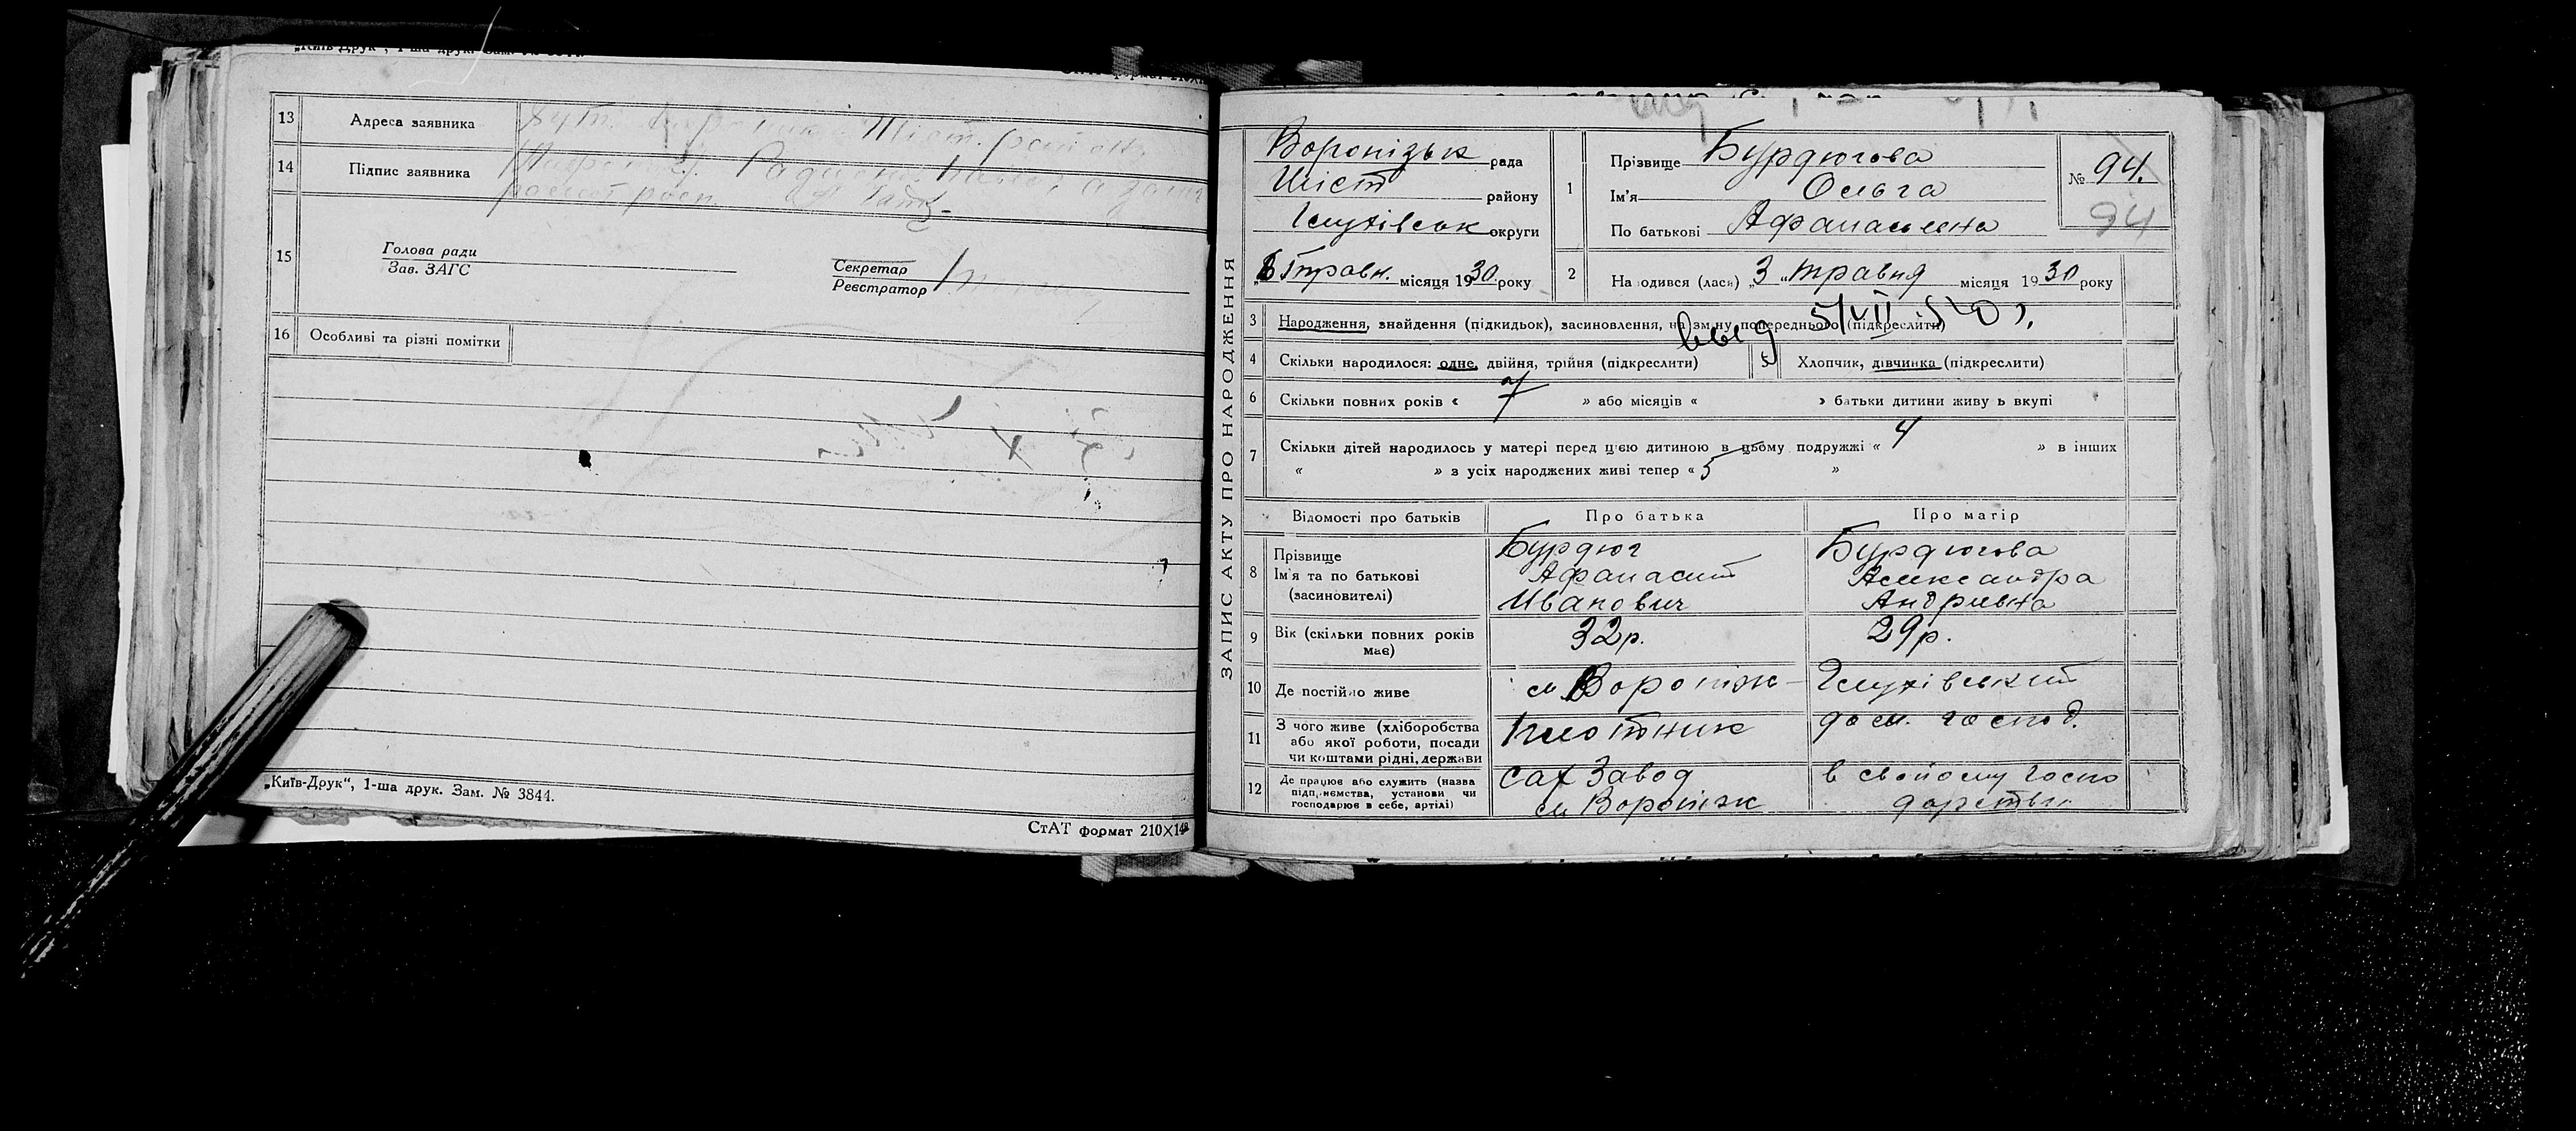 13 Адреса заявника
14 Підпис заявника
15 Голова ради
Зав. ЗАГС
Секретар
Реєстратор
16 Особливі та різні помітки
„Київ-Друк“, 1-ша друк. Зам. № 3844.
СтАТ формат 210×148
ЗАПИС АКТУ ПРО НАРОДЖЕННЯ
Воронізьк рада
Шіст району
Глухівськ округи
травн. місяця 1930 року
1 Прізвище Бурдюгова
Ім'я Ольга
По батькові Афанасьевна
№ 94.
94
2 На одився (лася) „3 „ травня місяця 1930 року
3 Народження, знайдення (підкидьок), засиновлення, на зміну попереднього (підкреслити)
5/VII
4 Скільки народилося: одне, двійня, трійня (підкреслити)
5 Хлопчик, дівчинка (підкреслити)
6 Скільки повних років « 7 » або місяців « » батьки дитини живу ь вкупі
7 Скільки дітей народилось у матері перед цією дитиною в цьому подружжі « 4 » в інших
« » з усіх народжених живі тепер « 5 »
Відомості про батьків Про батька Про матір
8 Прізвище Бурдюг Бурдюгова
Ім'я та по батькові Афанасий Александра
(засиновителі) Иванович Андриевна
9 Вік (скільки повних років має) 32р. 29р.
10 Де постійно живе см Вороніж Глухівський
11 З чого живе (хліборобства або якої роботи, посади чи коштами рідні, держави Плотник дом. господ.
12 Де працює або служить (назва підприємства, установи чи господарює в себе, артілі) Сах Завод в свойому госпо
см Вороніж дарстві